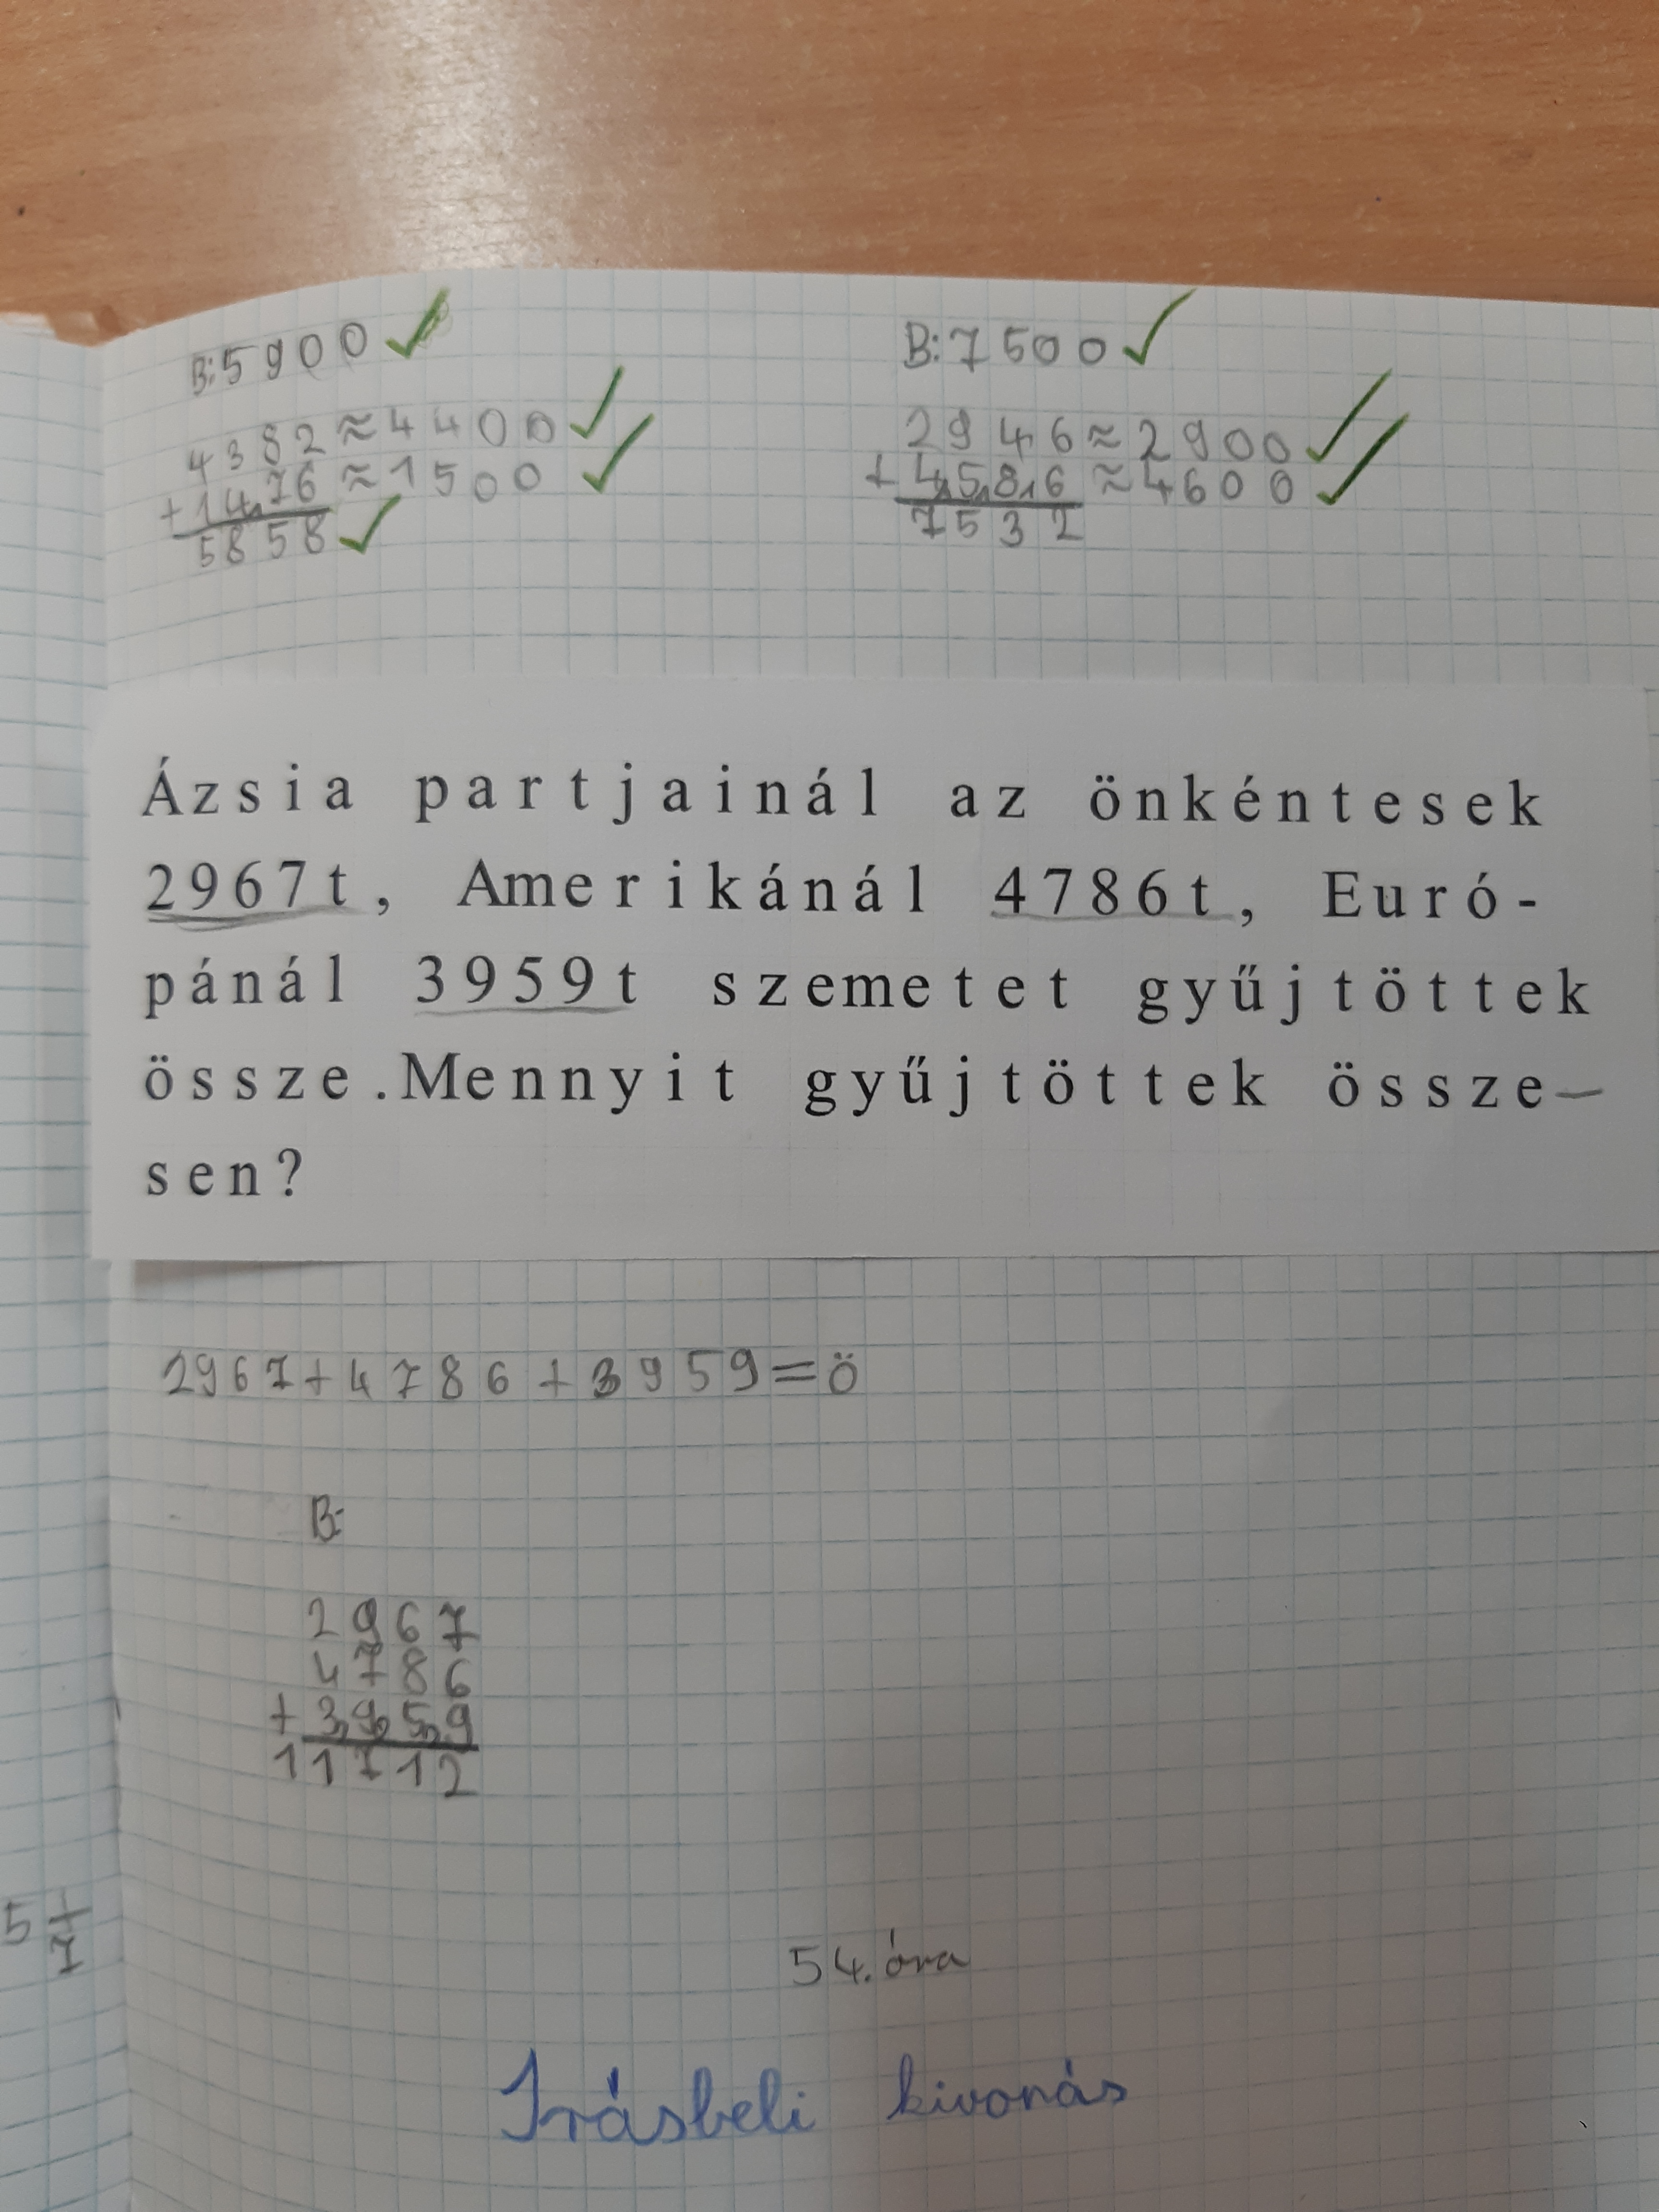 B:5900
4382≈4400
+1476≈1500
5858
B:7500
2946≈2900
+4586≈4600
7532
Ázsia partjainál az önkéntesek
2967t, Amerikánál 4786t, Euró-
pánál 3959t szemetet gyűjtöttek
össze.Mennyit gyűjtöttek össze-
sen?
2967+4786+3959=ö
B:
2967
4786
+3959
11712
54. óra
Írásbeli kivonás